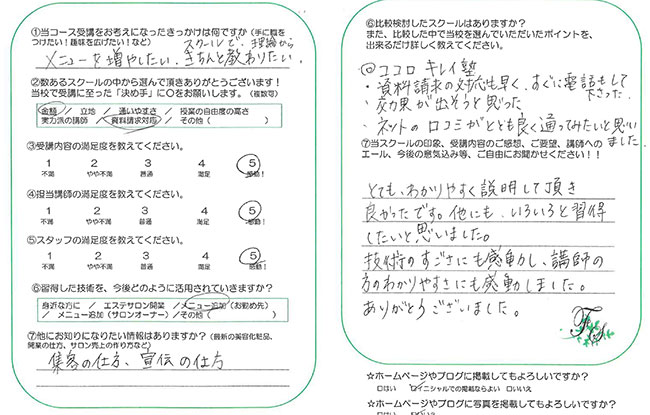 ①当コース受講をお考えになったきっかけは何ですか（手に職を
つけたい！趣味を広げたい！など）
スクールで、理論から
メニューを増やしたい。きちんと教わりたい。
②数あるスクールの中から選んで頂きありがとうございます！
当校で受講に至った「決め手」に○をお願いします。（複数可）
金額 / 立地 / 通いやすさ / 授業の自由度の高さ
実力派の講師 / 資料請求対応 / その他（ ）
③受講内容の満足度を教えてください。
1 2 3 4 5
不満 やや不満 普通 満足 感動！
④担当講師の満足度を教えてください。
1 2 3 4 5
不満 やや不満 普通 満足 感動！
⑤スタッフの満足度を教えてください。
1 2 3 4 5
不満 やや不満 普通 満足 感動！
⑥習得した技術を、今後どのように活用されていきますか？
身近な方に / エステサロン開業 / メニュー追加（お勤め先）
/ メニュー追加（サロンオーナー）/ その他（ ）
⑦他にお知りになりたい情報はありますか？（最新の美容化粧品、
開業の仕方、サロン売上の作り方など）
集客の仕方、宣伝の仕方
⑥比較検討したスクールはありますか？
また、比較した中で当校を選んでいただいたポイントを、
出来るだけ詳しく教えてください。
ココロ キレイ塾
・資料請求の対応も早く、すぐに電話もして
下さった。
・効果が出そうと思った
・ネットの口コミがとても良く通ってみたいと思い
ました。
⑦当スクールの印象、受講内容のご感想、ご要望、講師への
エール、今後の意気込み等、ご自由にお聞かせください！！
とても、わかりやすく説明して頂き
良かったです。他にも、いろいろと習得
したいと思いました。
技術のすごさにも感動し、講師の
方のわかりやすさにも感動しました。
ありがとうございました。
☆ホームページやブログに掲載してもよろしいですか？
□はい □イニシャルでの掲載ならよい □いいえ
☆ホームページやブログに写真を掲載してもよろしいですか？
□はい □いいえ